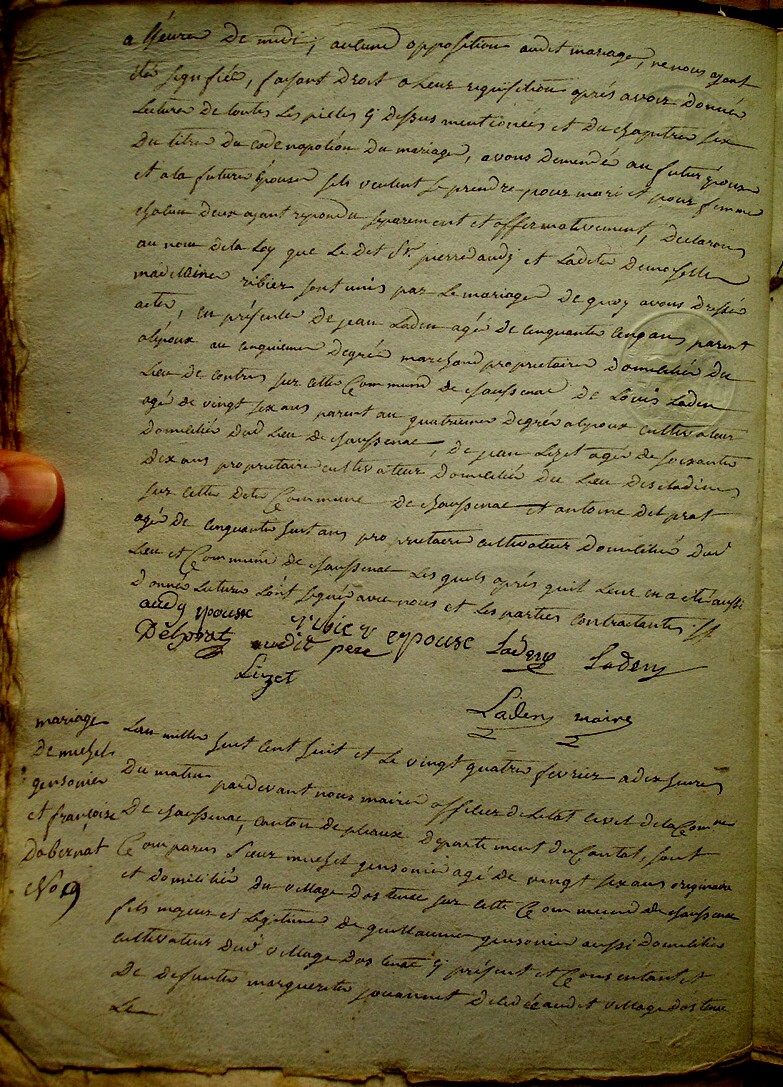 a l'heure de midi, aucune opposition audit mariage, ne nous ayant
été signifiée, faisant droit a leur requisition après avoir donné
Lecture de toutes Les pieces cy dessus mentionées et du chapitre six
Du titre du code napoléon du mariage, avons demendé au futur époux
et a la future épouse sils veulent se prendre pour mari et pour femme
chacun deux ayant repondu separement et affirmativement, Declarons
au nom de la Loy que Le dit Sr. pierre audy et Ladite Demoiselle
madelaine ribier sont unis par Le mariage De quoy avons Dressé
acte, en présence De jean Laden agé de cinquante cinq ans, parent
a lépoux au cinquieme degrée marchand proprietaire domicilié du
Lieu de contres sur cette Commune de chaussenac de Louis Laden
agé de vingt six ans parent au quatrieme degrée a lépoux cultivateur
domicilié dud Lieu de chaussenac, de jean Lizet agé de soixante
dix ans proprietaire cultivateur domicilié du Lieu
sur cette dite Commune De chaussenac et antoine delprat
agé de cinquante huit ans proprietaire cultivateur domicilié dud
Lieu et Commune de chaussenac Les quels après quil Leur en a été aussi
donné Lecture L'ont signé avec nous et Les parties contractantes
audy epoux ribier epouse Laden Laden
Delprat audit pere
Lizet
Laden maire
mariage
De michel
gensonier
et françoise
Dabernat
No 9
L'an mille huit cent huit et Le vingt quatre fevrier a dix heures
Du matin pardevant nous maire officier de létat civil de la Comne
De chaussenac, canton de pleaux Departement du Cantal, sont
Comparus Sieur michel gensonié agé de vingt six ans originaire
et domicilié du village dostenac sur cette Commune de chaussenac
fils majeur et Legitime de guillaume gensonier aussi domicilié
cultivateur dud village dostenac cy présent et Consentant et
De defunte marguerite jouannet decedée audit village dostenac
Le